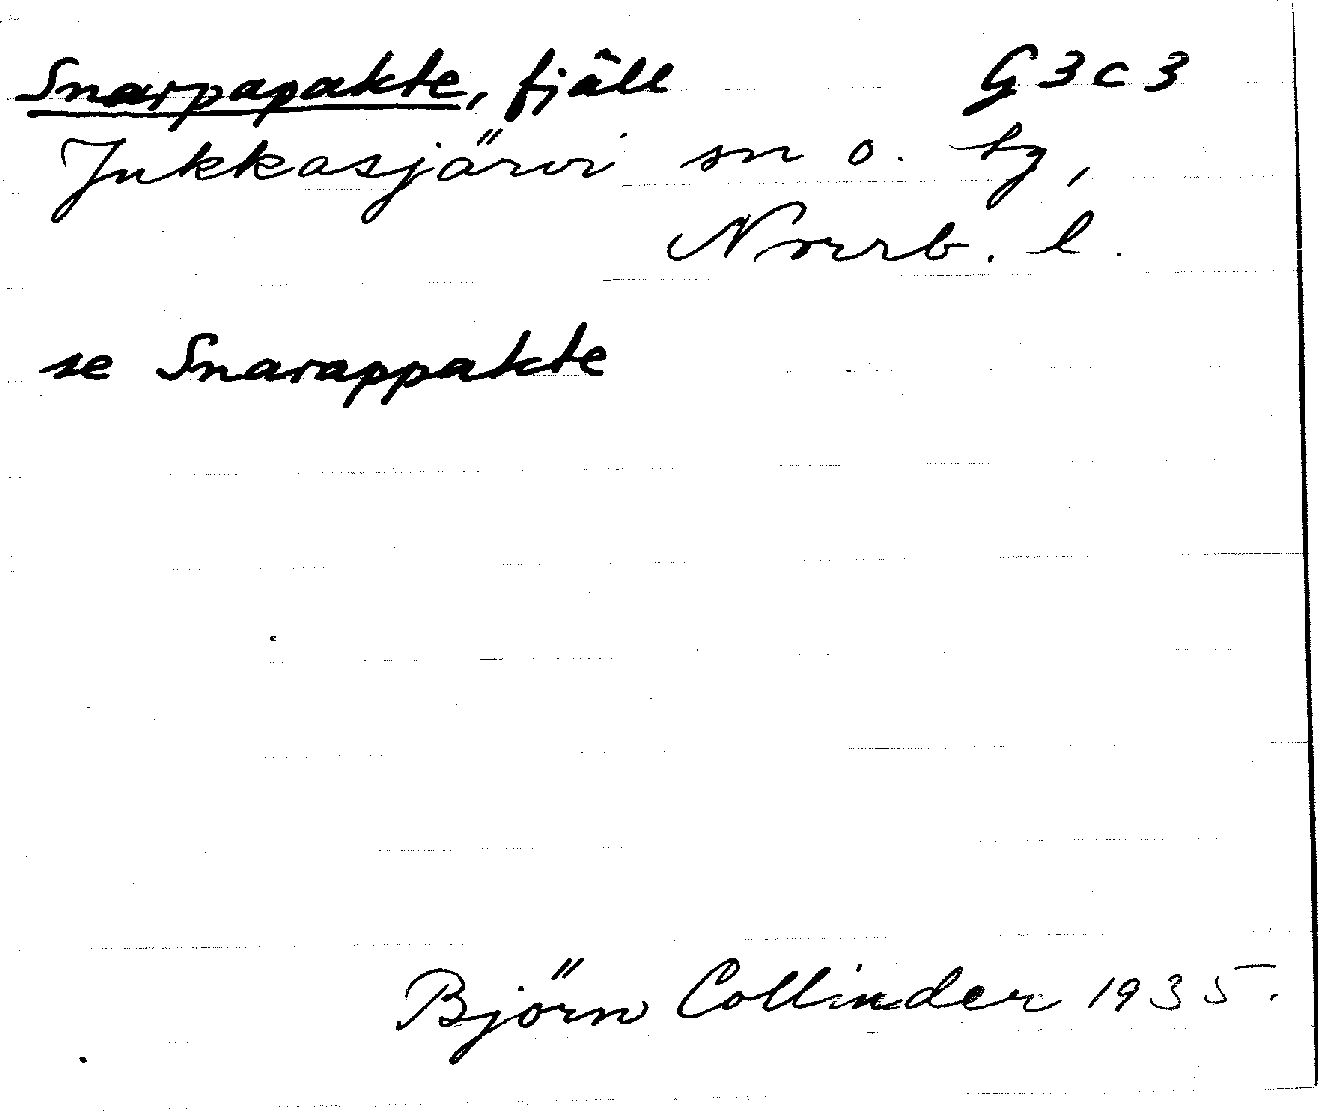 Snarpapakte, fjäll G3c3
Jukkasjärvi sn o. tg,
Norrb. l.
se Snarappakte
Björn Collinder 1935.